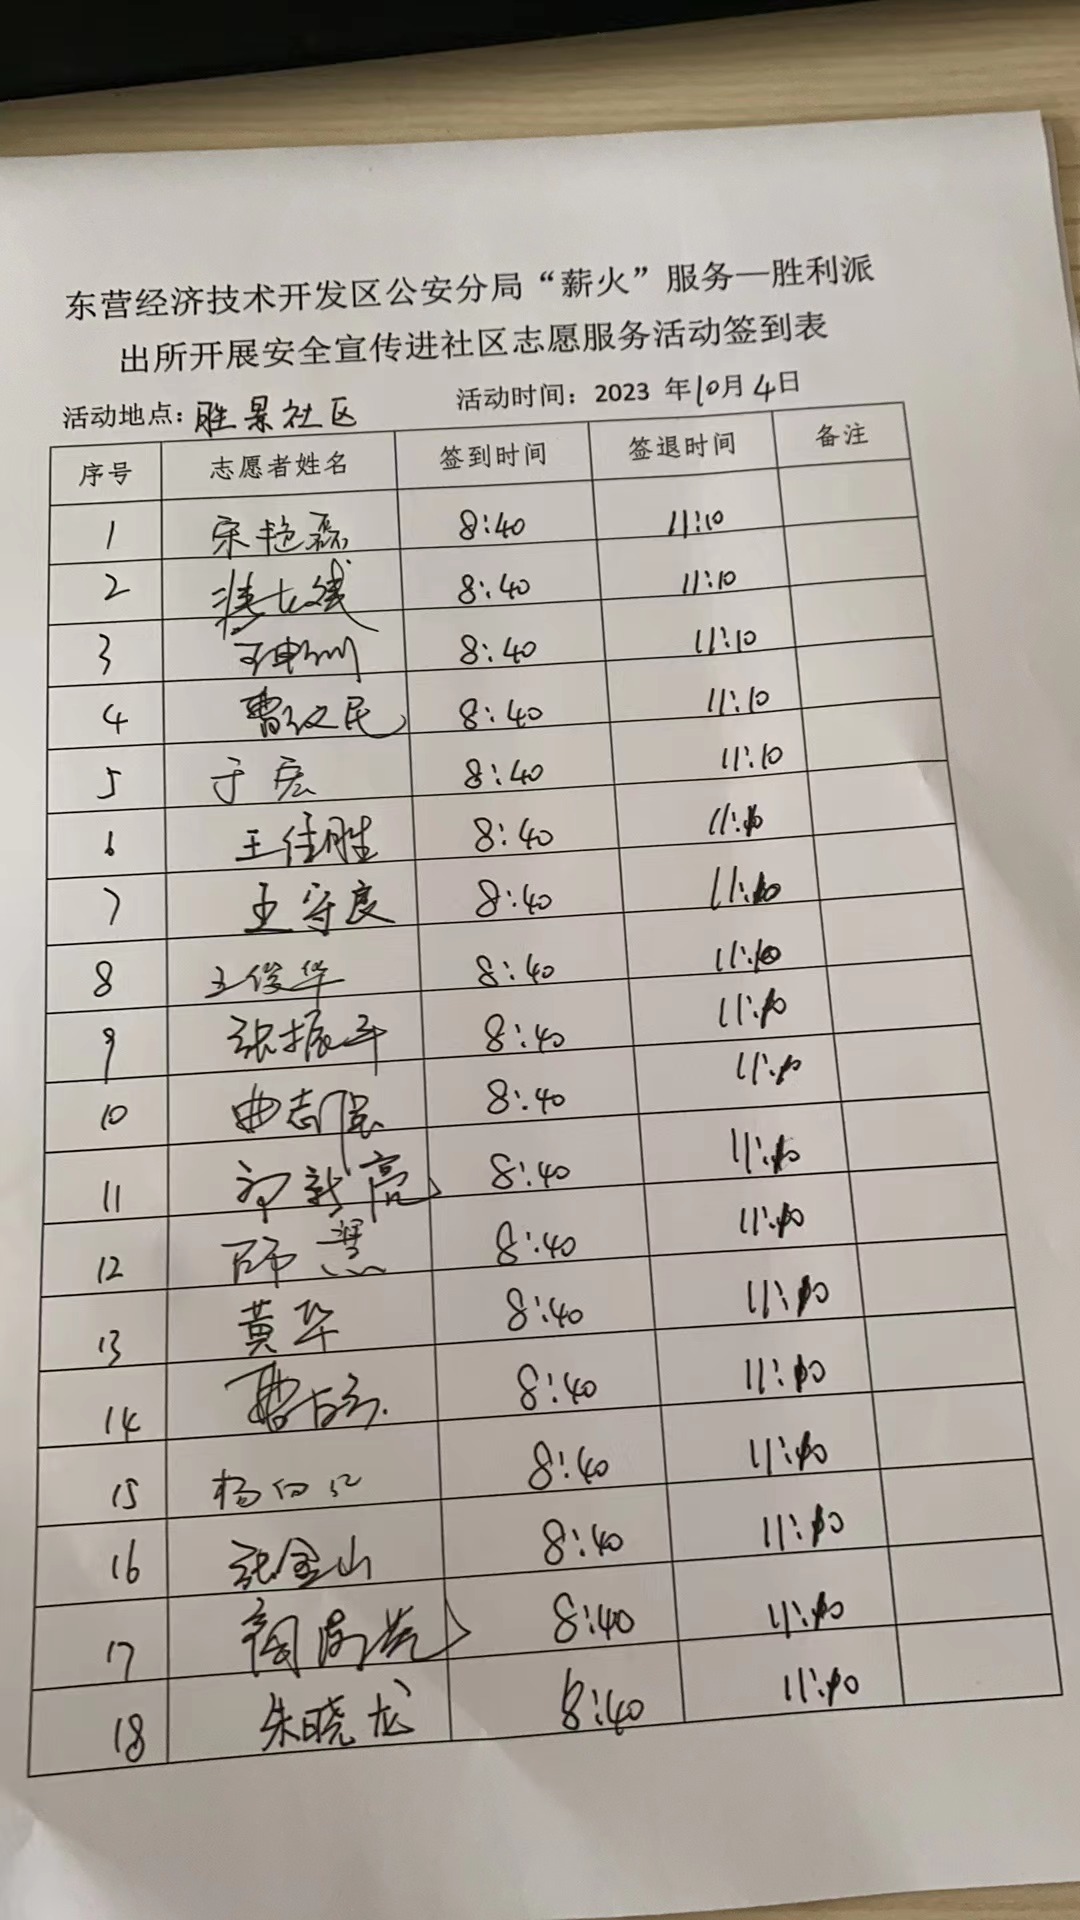 东营经济技术开发区公安分局“薪火”服务—胜利派
出所开展安全宣传进社区志愿服务活动签到表
活动地点：胜景社区 活动时间：2023 年10月4日
序号 志愿者姓名 签到时间 签退时间 备注
1 宋艳磊 8:40 11:10
2 8:40 11:10
3 8:40 11:10
4 曹红民 8:40 11:10
5 于宏 8:40 11:10
6 王佳胜 8:40 11:10
7 王守良 8:40 11:10
8 王俊华 8:40 11:10
9 张振平 8:40 11:10
10 曲志强 8:40 11:10
11 8:40 11:10
12 8:40 11:10
13 黄华 8:40 11:10
14 8:40 11:10
15 8:40 11:10
16 张金山 8:40 11:10
17 8:40 11:10
18 朱晓龙 8:40 11:10